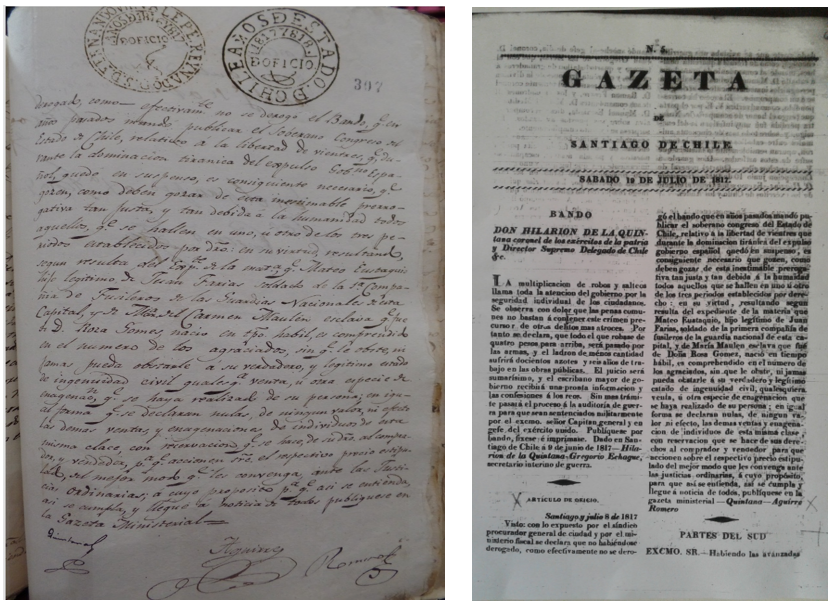 DOFICIO
DOFICIO
307
darado, como efectivamte. no se derogó el Bando, q.e en
años pasados mandó publicar el Soberano Congreso del
Estado de Chile, relativo à la libertad de vientres, q.e du-
rante la dominacion tiranica del expulso Gob.no Espa-
ñol, quedó en suspenso, es consiguiente necesario, q.e
gozen, como deben gozar de esta inestimable prerro-
gativa tan justa, y tan debida à la humanidad todos
aquellos, q.e se hallen en uno, ù otro de los tres pe-
riodos establecidos por dro: en su virtud, resultando,
segun resulta del Exp.te de la mat.a q.e Mateo Eustaquio
hijo legitimo de Juan Farias Soldado de la 1.a Compa-
ñia de Fusileros de las Guardias Nacionales de esta
Capital, y de M.a del Carmen Maulen esclava q.e fue
de D.a Rosa Gomes, nacio en tpo. habil, es comprendido
en el numero de los agraciados, sin q.e le obste, ni
jamas pueda obstarle à su verdadero, y legitimo estado
de ingenuidad civil qualesq.a venta, ù otra especie de
enagenac.n q.e se haya realizado de su persona; en igu-
al forma q.e se declaran nulas, de ningun valor, ni efecto
las demas ventas, y enagenaciones de individuos de esta
misma clase, con reservacion, q.e se hace, de su dro. al compra-
dor, y vendedor, p.a q.e accionen sre. el respectivo precio estipu-
lado, del mejor modo q.e les convenga, ante las Justi-
cias ordinarias; à cuyo proposito p.a q.e asi se entienda,
asi se cumpla, y llegue à noticia de todos publiquese en
la Gazeta Ministerial
Quintana
Aguirre
Romero
N. 5.
GAZETA
DE
SANTIAGO DE CHILE
SABADO 19 DE JULIO DE 1817.
BANDO
DON HILARION DE LA QUIN-
tana coronel de los exércitos de la patria
y Director Supremo Delegado de Chile
&c.
LA multiplicacion de robos y salteos
llama toda la atencion del gobierno por la
seguridad individual de los ciudadanos.
Se observa con dolor que las penas comu-
nes no bastan á contener este crimen pre-
cursor de otros delitos mas atroces. Por
tanto se declara, que todo el que robase de
quatro pesos para arriba, será pasado por
las armas, y el ladron de ménos cantidad
sufrirá docientos azotes y seis años de tra-
bajo en las obras públicas. El juicio será
sumarísimo, y el escribano mayor de go-
bierno recibirá una pronta informacion y
las confesiones á los reos. Sin mas trámi-
te pasará el proceso á la auditoría de guer-
ra para que sean sentenciados militarmente
por el exmo. señor Capitan general y en
gefe del exército unido. Publíquese por
bando, fixese é imprimase. Dado en San-
tiago de Chile á 9 de junio de 1817—Hila-
rion de la Quintana-Gregorio Echague,
secretario interino de guerra.
ARTICULO DE OFICIO.
Santiago y julio 8 de 1817
Visto: con lo expuesto por el síndico
procurador general de ciudad y por el mi-
nisterio fiscal se declara que no habiéndose
derogado, como efectivamente no se dero-
gó el bando que en años pasados mandó pu-
blicar el soberano congreso del Estado de
Chile, relativo á la libertad de vientres que
durante la dominacion tiránica del expulso
gobierno español quedó en suspenso, es
consiguiente necesario que gozen, como
deben gozar de esta inestimable preroga-
tiva tan justa y tan debida á la humanidad
todos aquellos que se hallen en uno ú otro
de los tres periodos establecidos por dere-
cho: en su virtud, resultando segun
resulta del expediente de la materia que
Mateo Eustaquio, hijo legítimo de Juan
Farias, soldado de la primera compañia de
fusileros de la guardia nacional de esta ca-
pital, y de María Maulen esclava que fué
de Doña Rosa Gomez, nació en tiempo
hábil, es comprehendido en el número de
los agraciados, sin que le obste, ni jamas
pueda obstarle á su verdadero y legítimo
estado de ingenuidad civil, qualesquiera
venta, ú otra especie de enagenacion que
se haya realizado de su persona; en igual
forma se declaran nulas, de ningun va-
lor ni efecto, las demas ventas y enagena-
cion de individuos de esta misma clase,
con reservacion que se hace de sus dere-
chos al comprador y vendedor para que
accionen sobre el respectivo precio estipu-
lado del mejor modo que les convenga ante
las justicias ordinarias, á cuyo propósito,
para que así se entienda, así se cumpla y
llegue á noticia de todos, publíquese en la
gazeta ministerial—Quintana—Aguirre
Romero
PARTES DEL SUD
EXCMO. SR.—Habiendo las avanzadas